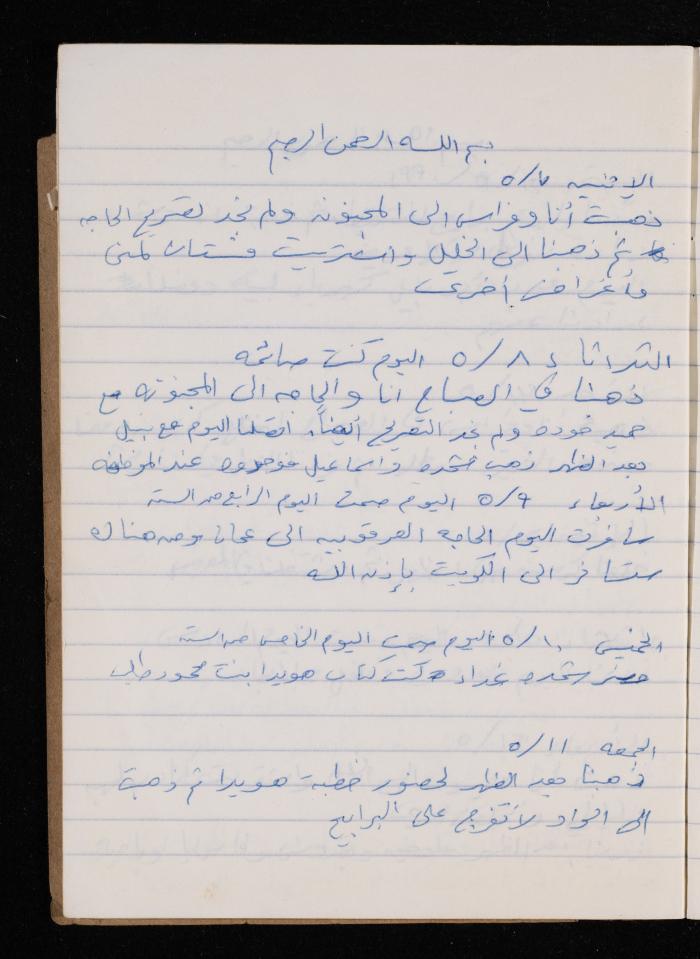 بسم الله الرحمن الرحيم
الاثنين ٥/٧
ذهبت أنا وفراس الى المجنونه ولم نجد تصريح الحاجه
ثم ذهبنا الى الخليل واشتريت فستان لمنى
وأغراض أخرى
الثلاثاء ٥/٨ اليوم كنت صائمه
ذهبنا في الصباح أنا والحاجه الى المجنونه مع
حميد عوده ولم نجد التصريح أيضاً. اتصلنا اليوم مع نبيل
بعد الظهر ذهب واسماعيل فوجدوه عند الموظفه
الأربعاء ٥/٩ اليوم صمت اليوم الرابع من الستة
سافرت اليوم الحاجه العرقوبيه الى عمان ومن هناك
ستسافر الى الكويت بإذن الله
الخميس ٥/١٠ اليوم صمت اليوم الخامس من الستة
غداء كتب كتاب هويدا بنت محمود طالب
الجمعه ٥/١١
ذهبنا بعد الظهر لحضور خطبة هويدا ثم ذهبت
الى الواد لأتفرج على البرابيج